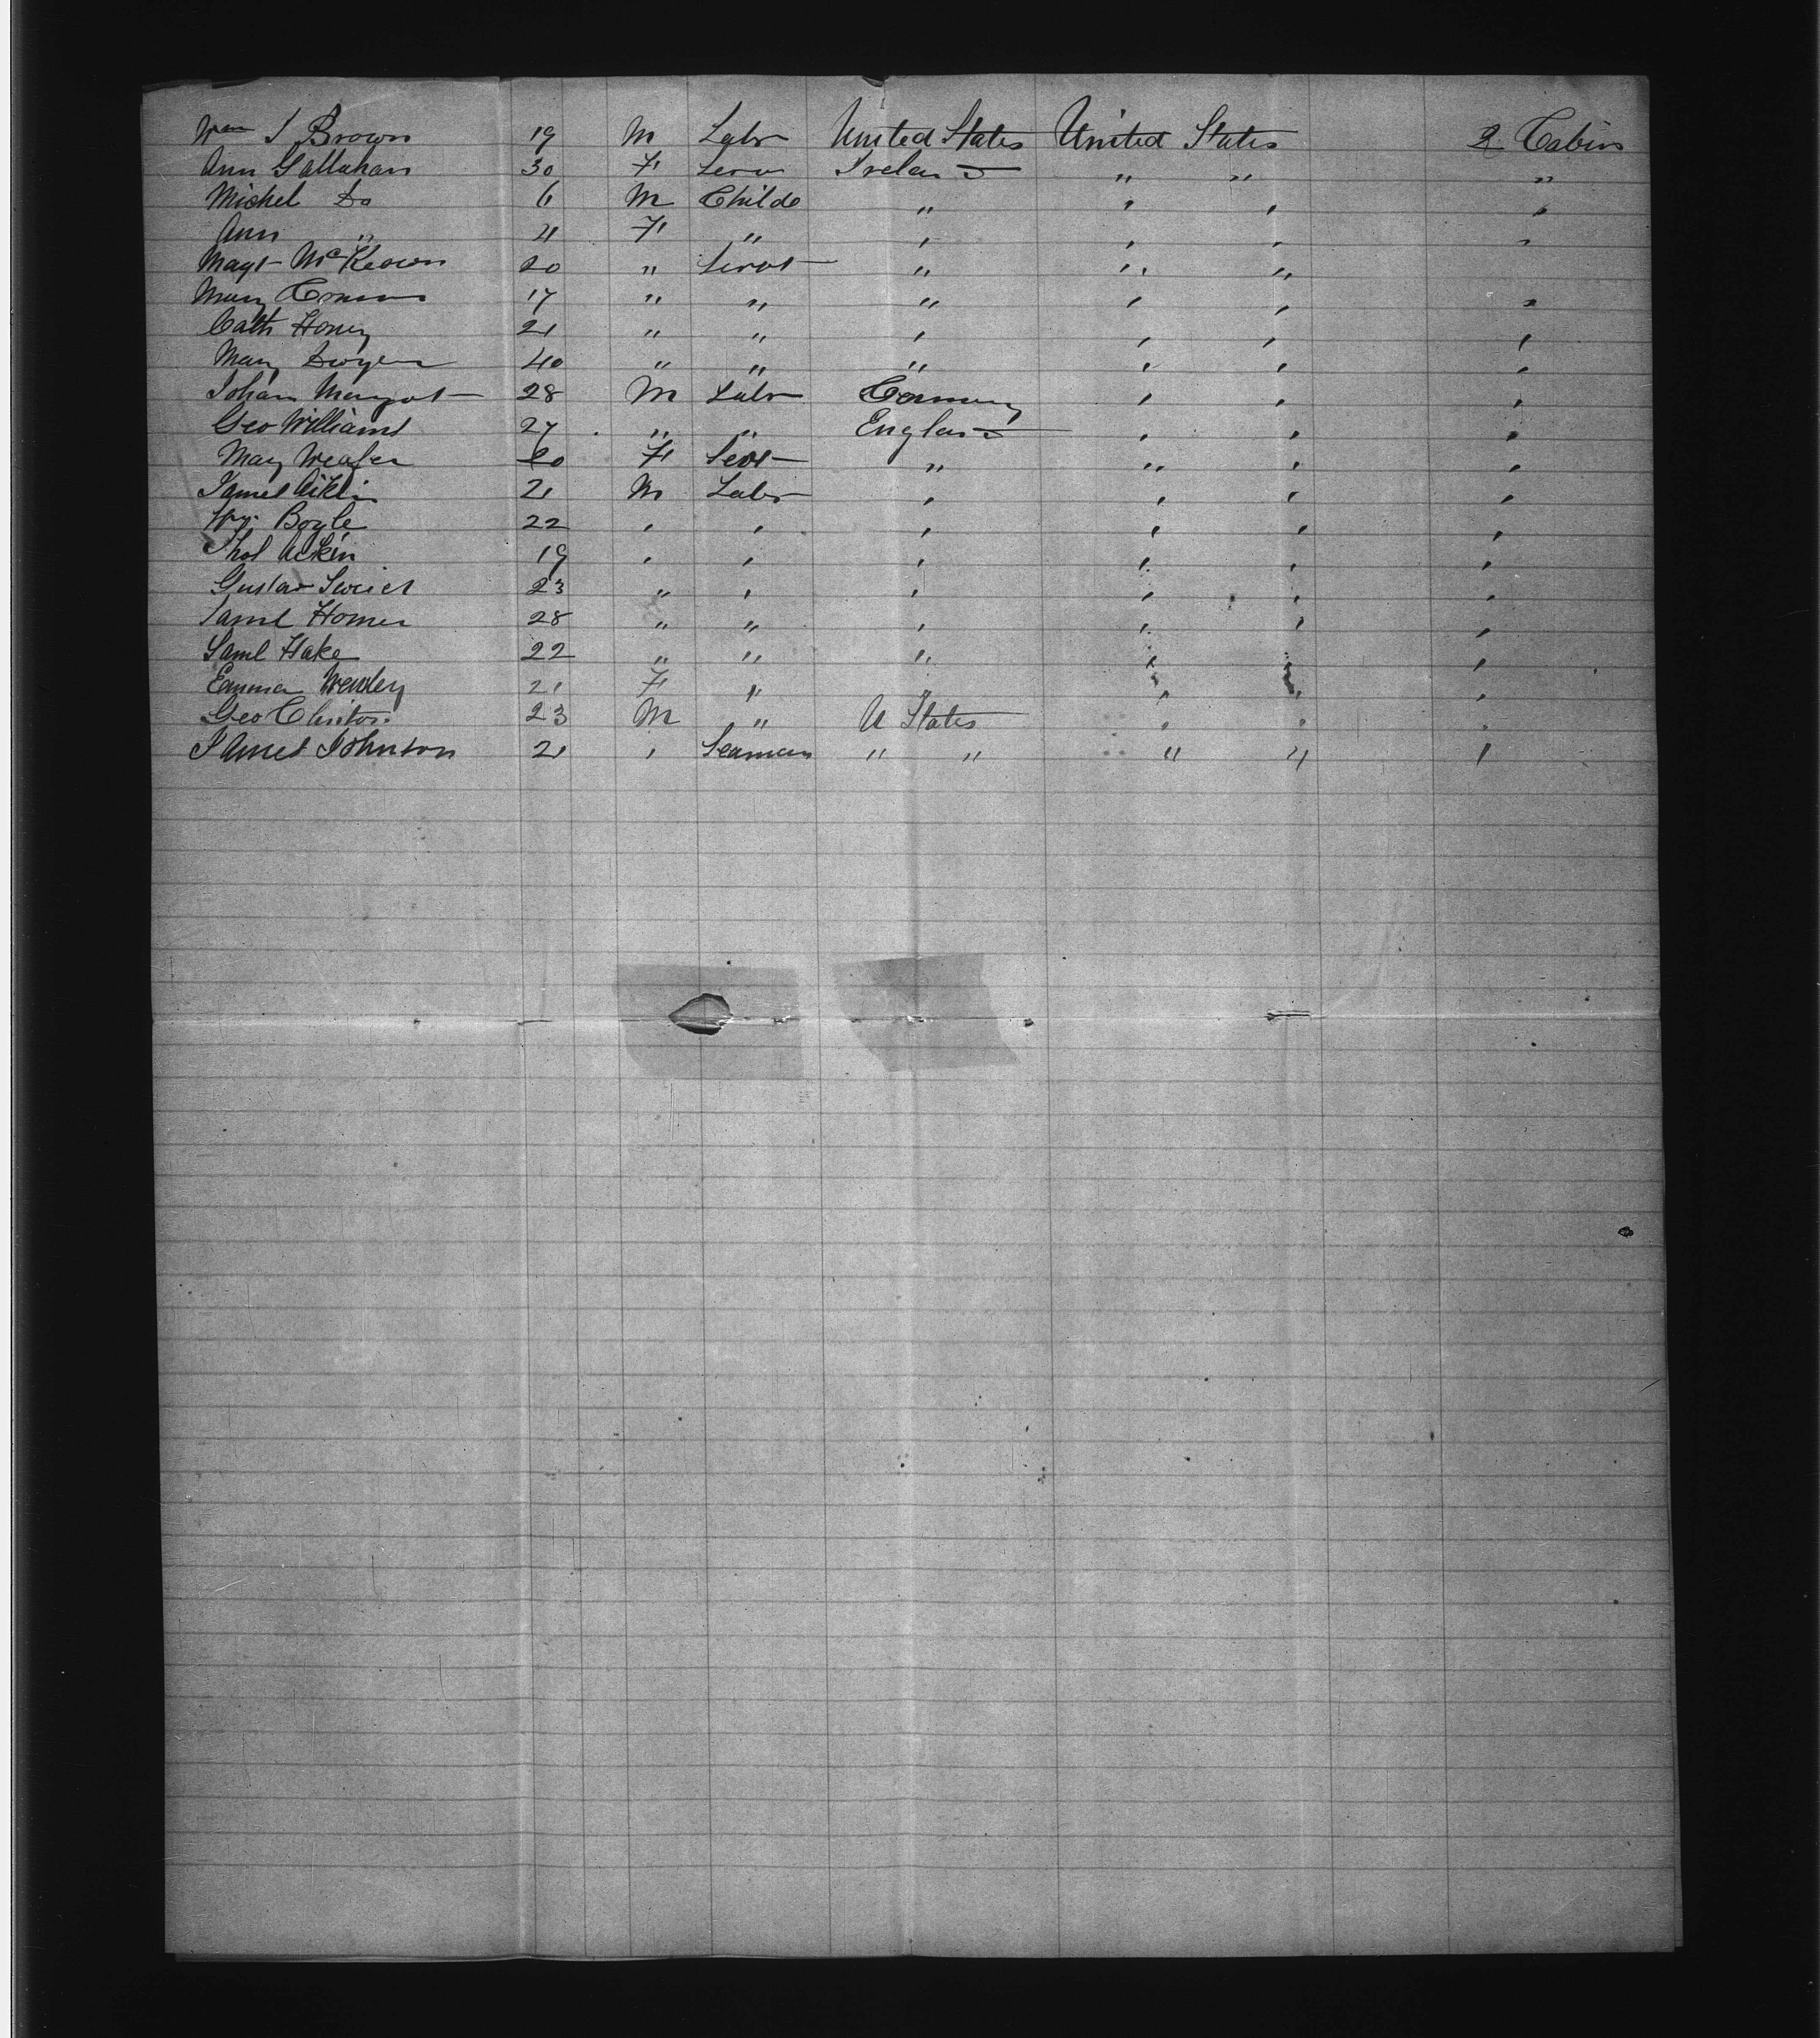 Wm J Brown 19 M Labr United States United States 2 Cabin
Ann Gallahan 30 F Serv Ireland " " "
Michel Do 6 M Childe " " " "
Ann " 4 F " " " " "
Magt McKeown 20 " Servt " " "
Mary 17 " " " " " "
Cath Honey 21 " " " " " "
Mary Dwyer 40 " " " " " "
Johan Mangot 28 M Labr Germany " " "
Geo Williams 27 " " England " " "
Mary Weafer 20 F Servt " " " "
James Aiklin 21 M Labr " " " "
Boyle 22 " " " " " "
Thos Aiken 19 " " " " " "
Gustav 23 " " " " " "
Saml Homer 28 " " " " " "
Saml Hake 22 " " " " " "
Emma 21 F " " " " "
Geo Clinton 23 M " U States " " "
James Johnson 21 " Seaman " " " " "